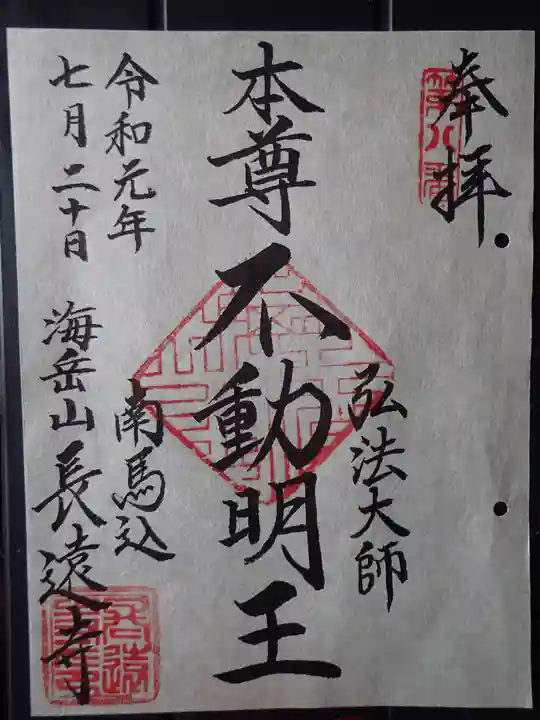 奉拝
第八番
弘法大師
本尊不動明王
令和元年
七月二十日
南馬込
海岳山長遠寺